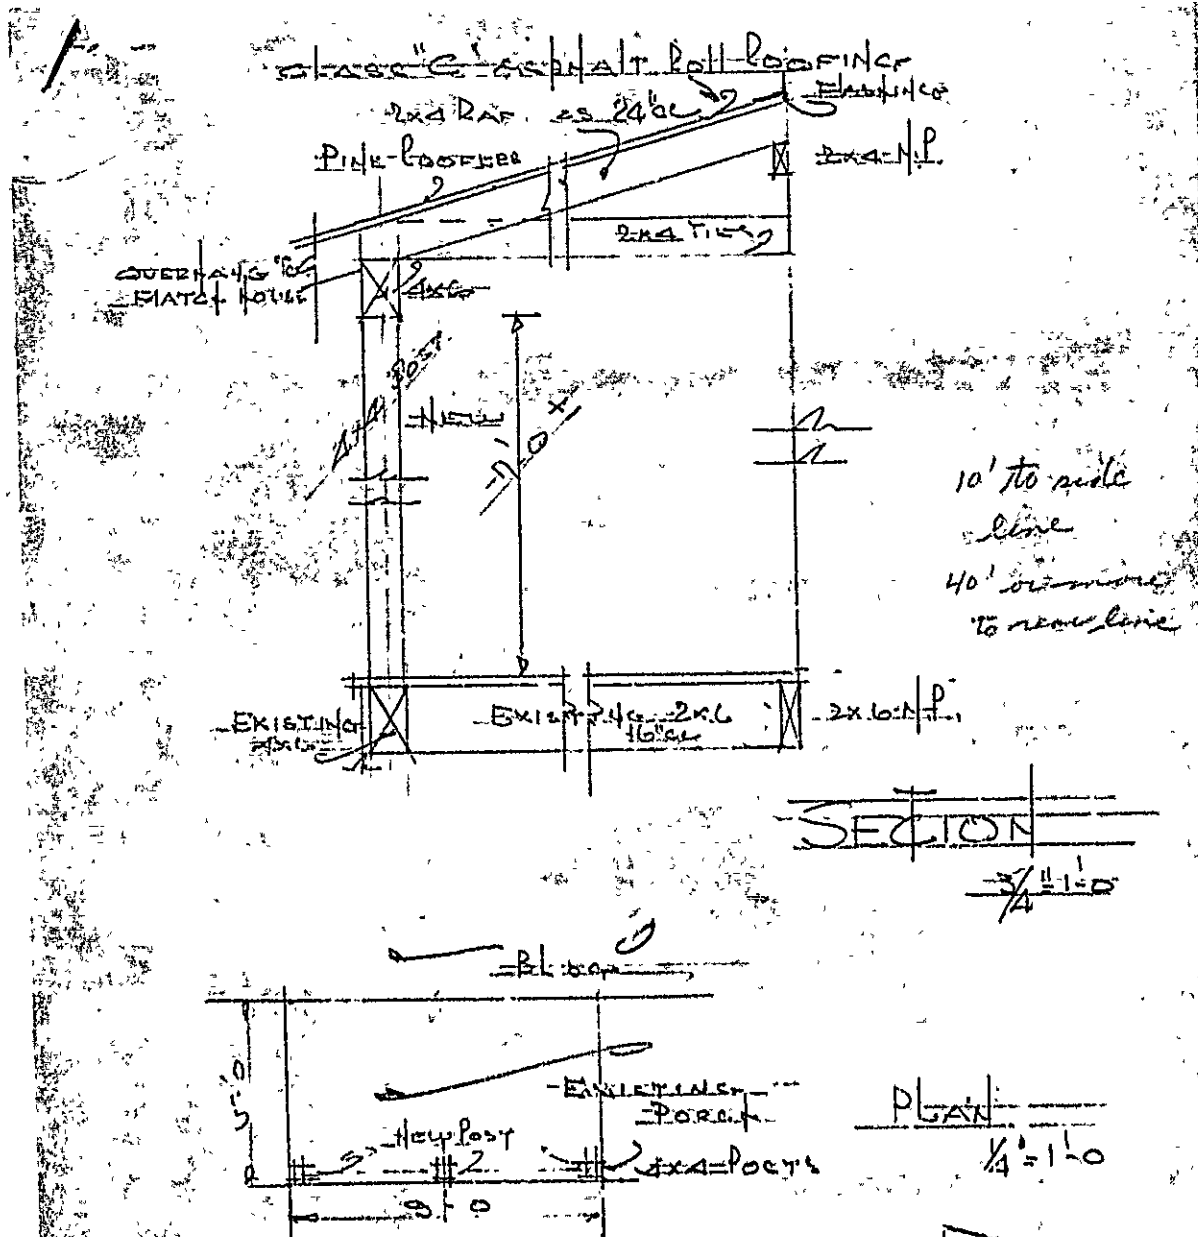 CLASS "C" ASPHALT ROLL ROOFING
FLASHING
2x4 RAF. 24" OC
PINE ROOFERS
2x4 N.P.
2x4 TIES
OVERHANG TO
MATCH HOUSE
4x6
4x4 POST
NEW
10' to side
line
40' or more
to rear line
EXISTING
EXISTING 2x6
16" OC
2x6 N.P.
SECTION
3/4" = 1'-0
EXISTING
PORCH
5'-0
NEW POST
4x4 POSTS
PLAN
1/4" = 1'-0